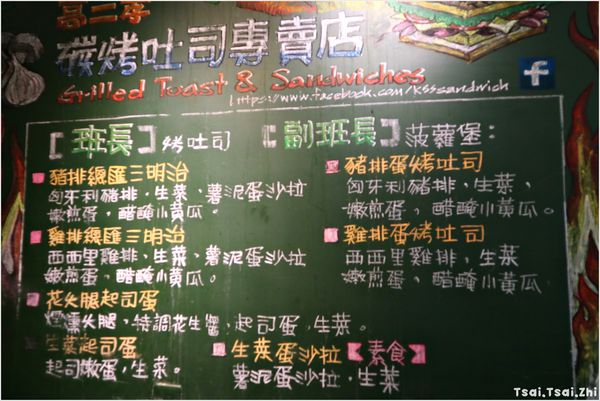 高二孝
碳烤吐司專賣店
Grilled Toast & Sandwiches
https://www.facebook.com/ksssandwich
f
【班長】烤吐司
豬排總匯三明治
匈牙利豬排、生菜、薯泥蛋沙拉
嫩煎蛋、醋醃小黃瓜。
雞排總匯三明治
西西里雞排、生菜、薯泥蛋沙拉
嫩煎蛋、醋醃小黃瓜。
花火腿起司蛋
煙燻火腿、特調花生醬、起司蛋、生菜。
生菜起司蛋
起司嫩蛋、生菜。
生菜蛋沙拉【素食】
薯泥蛋沙拉、生菜
【副班長】菠蘿堡:
豬排蛋烤吐司
匈牙利豬排、生菜、
嫩煎蛋、醋醃小黃瓜。
雞排蛋烤吐司
西西里雞排、生菜
嫩煎蛋、醋醃小黃瓜
Tsai.Tsai.Zhi